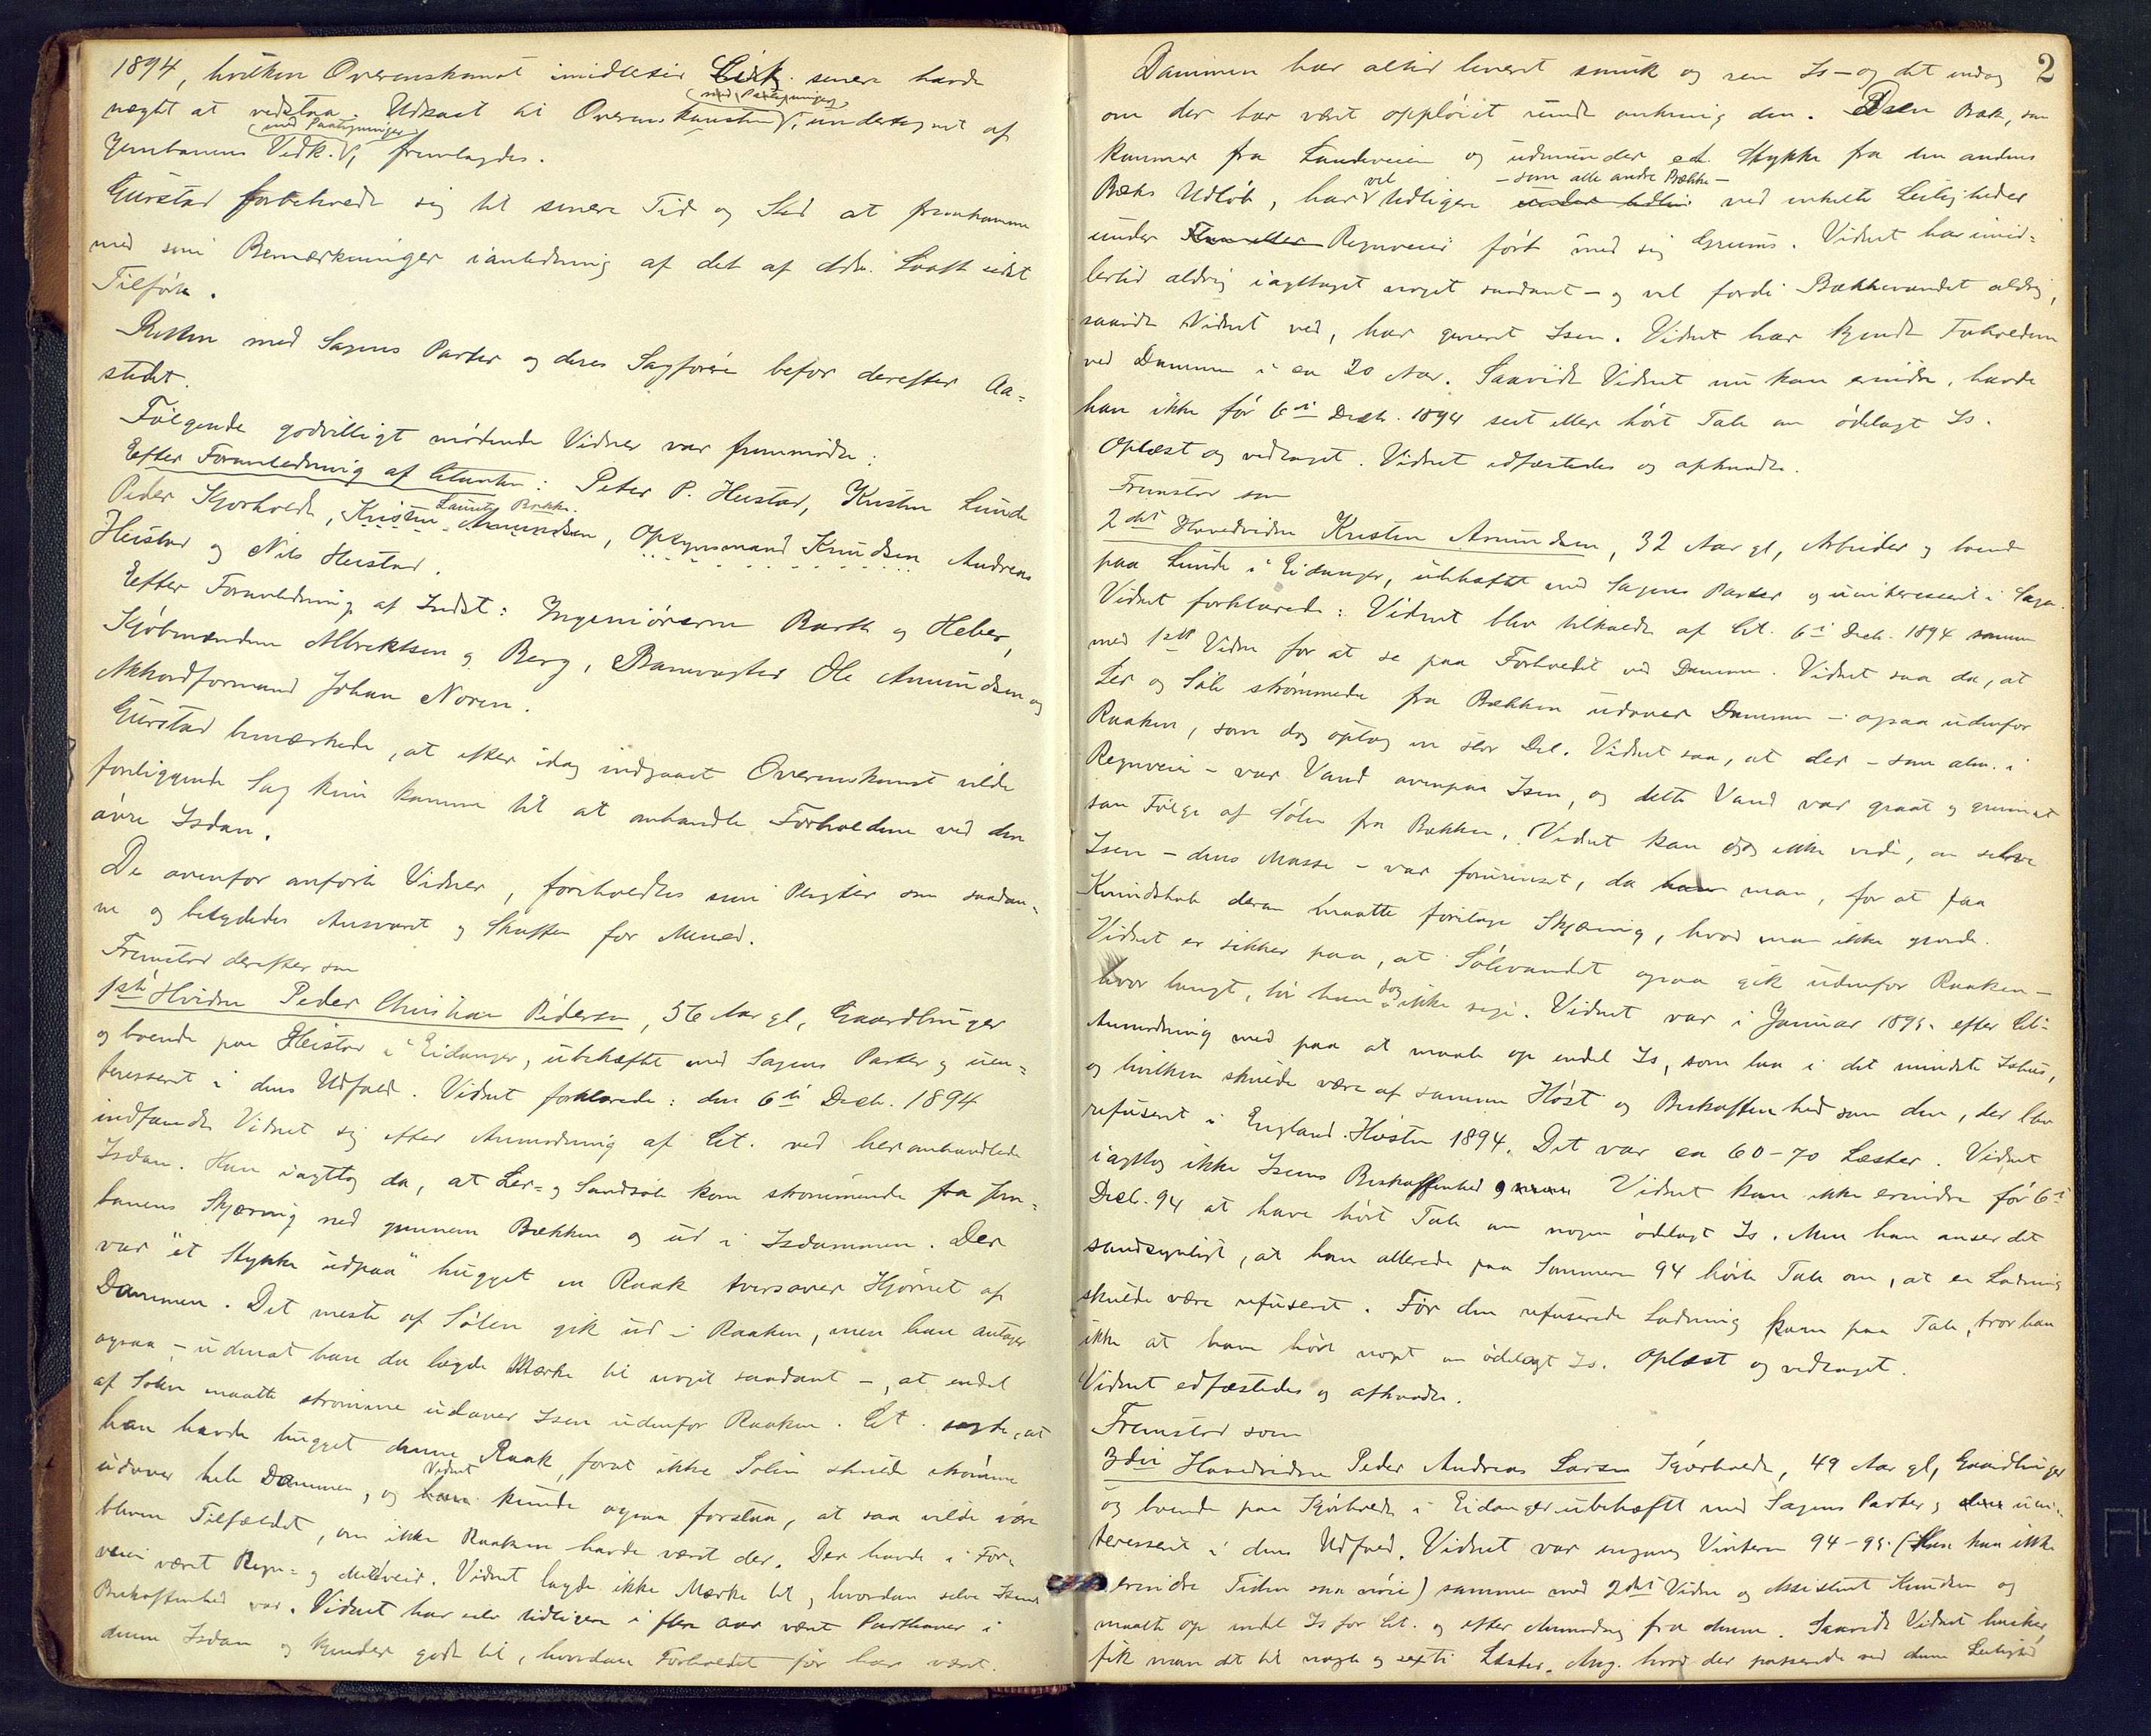 1894, hvilken Overenskomst imidlertid Citk. senere havde
nægtet at vedstaa. Udkast til Overenskomsten (med Paategninger), undertegnet af
Jernbanens Vedk. (med Paategninger), fremlagdes.
Gurstad forbeholdt sig til senere Tid og Sted at fremkomme
med sine Bemærkninger i anledning af det af Adv. Laast sidst
Tilførte.
Retten med Sagens Parter og deres Sagførere befor derefter Aa-
stedet.
Følgende godvilligt mødende Vidner var fremmødte:
Efter Foranledning af Citanten: Peter P. Heistad, Kristen Lunde
Peder Kjørholdt, Kristen Amundsen, Laurits Bakke. Opsynsmand Knudsen Andreas
Heistad og Nils Heistad.
Efter Foranledning af Indst: Ingeniørerne Barth og Heber,
Kjøbmændene Albrektsen og Berg, Banevogter Ole Amundsen og
Akkordformand Johan Noren.
Gurstad bemærkede, at efter idag indgaaet Overenskomst vilde
foreliggende Sag kun komme til at omhandle Forholdene ved den
øvre Isdam.
De ovenfor anførte Vidner, foreholdtes sine Pligter som saadan-
ne og betydedes Ansvaret og Straffen for Mened.
Fremstod derefter som
1ste Hvidne Peder Christian Pedersen, 56 Aar gl, Gaardbruger
og boende paa Heistad i Eidanger, ubehæftet med Sagens Parter og uin-
teresseret i dens Udfald. Vidnet forklarede: den 6te Decb. 1894
indfandt Vidnet sig efter Anmodning af Cit. ved heromhandlede
Isdam. Han iagttog da, at Ler- og Sandsøle kom strømmende fra Jern-
banens Skjæring ned gjennem Bækken og ud i Isdammen. Der
var "et Stykke udpaa" hugget en Raak tversover Hjørnet af
Dammen. Det meste af Sølen gik ud i Raaken, men han antager
ogsaa – uden at han da lagde Mærke til noget saadant –, at endel
af Sølen maatte strømme udover Isen udenfor Raaken. Cit. sagde, at
han havde hugget denne Raak, forat ikke Sølen skulde strømme
udover hele Dammen, og Vidnet kunde ogsaa forstaa, at saa vilde være
bleven Tilfældet, om ikke Raaken havde været der. Der havde i For-
veien været Regn- og Mildveir. Vidnet lagde ikke Mærke til, hvordan selve Isens
Beskaffenhed var. Vidnet har selv tidligere i flere Aar været Parthaver i
denne Isdam og kjender godt til, hvordan Forholdet før har været.
2
Dammen har altid leveret smuk og ren Is – og det endog
om der har været oppløiet rundt omkring den. Den Bæk, som
kommer fra Landeveien og udmunder et Stykke fra den andens
Bæks Udløb, har vel tidligere – som alle andre Bække – ved enkelte Leiligheder
under Regnveir ført med sig Grums. Vidnet har imid-
lertid aldrig iagttaget noget saadant – og vel fordi Bækkevandet aldrig,
saavidt Vidnet ved, har generet Isen. Vidnet har kjendt Forholdene
ved Dammen i ca 20 Aar. Saavidt Vidnet nu kan erindre, havde
han ikke før 6te Decb. 1894 seet eller hørt Tale om ødelagt Is.
Oplæst og vedtaget. Vidnet edfæstedes og aftraadte.
Fremstod som
2det Hovedvidne Kristen Amundsen, 32 Aar gl, Arbeider og boende
paa Lunde i Eidanger, ubehæftet med Sagens Parter og uinteresseret i Sagen.
Vidnet forklarede: Vidnet blev tilkaldt af Cit. 6te Decb. 1894 sammen
med 1ste Vidne for at se paa Forholdet ved Dammen. Vidnet saa da, at
Ler og Søle strømmede fra Bækken udover Dammen – ogsaa udenfor
Raaken, som dog optog en stor Del. Vidnet saa, at der – som alm. i
Regnveir – var Vand ovenpaa Isen, og dette Vand var graat og grumset
som Følge af Sølen fra Bækken. Vidnet kan dog ikke vide, om selve
Isen – dens Masse – var forurenset, da man, for at faa
Kundskab derom maatte foretage Skjæring, hvad man ikke gjorde.
Vidnet er sikker paa, at Sølevandet ogsaa gik udenfor Raaken –
hvor langt, tør han dog ikke sige. Vidnet var i Januar 1895 efter Cit.
Anmodning med paa at maale op endel Is, som laa i det mindste Ishus,
og hvilken skulde være af samme Høst og Beskaffenhed som den, der blev
refuseret i England Høsten 1894. Det var ca 60-70 Læster. Vidnet
iagttog ikke Isens Beskaffenhed Vidnet kan ikke erindre før 6te
Decb. 94 at have hørt Tale om nogen ødelagt Is. Men han anser det
sandsynligt, at han allerede paa Sommeren 94 hørte Tale om, at en Ladning
skulde være refuseret. Før den refuserede Ladning kom paa Tale, tror han
ikke at have hørt noget om ødelagt Is. Oplæst og vedtaget.
Vidnet edfæstedes og aftraadte.
Fremstod som
3die Hovedvidne Peder Andreas Larsen Kjørholdt, 49 Aar gl, Gaardbruger
og boende paa Kjørholdt i Eidanger ubehæftet med Sagens Parter og uin-
teresseret i dens Udfald. Vidnet var engang Vinteren 94-95 (Han kan ikke
erindre Tiden saa nøie) sammen med 2det Vidne og Assistent Knudsen og
maalte op endel Is for Cit. og efter Anmodning fra denne. Saavidt Vidnet husker,
fik man det til nogle og sexti Læster. Ang. hvad der passerede ved denne Leilighed